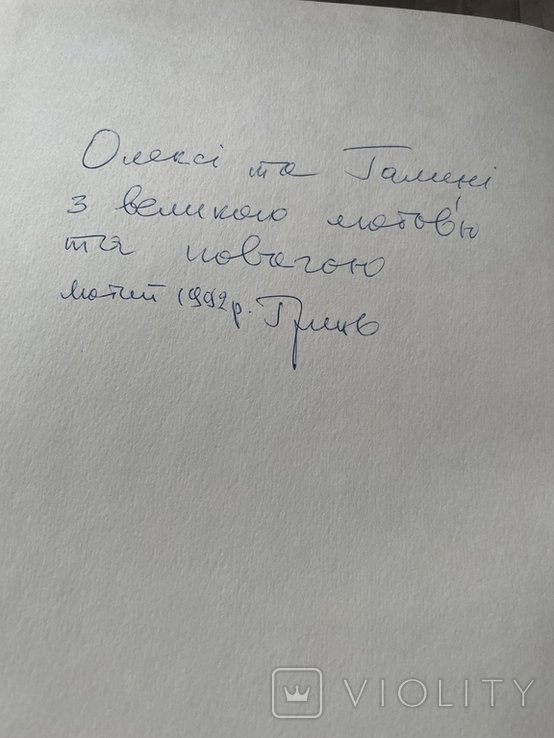 Олексі та Галині
з великою любов'ю
та повагою
лютий 1992 р. Гриць
VIOLITY